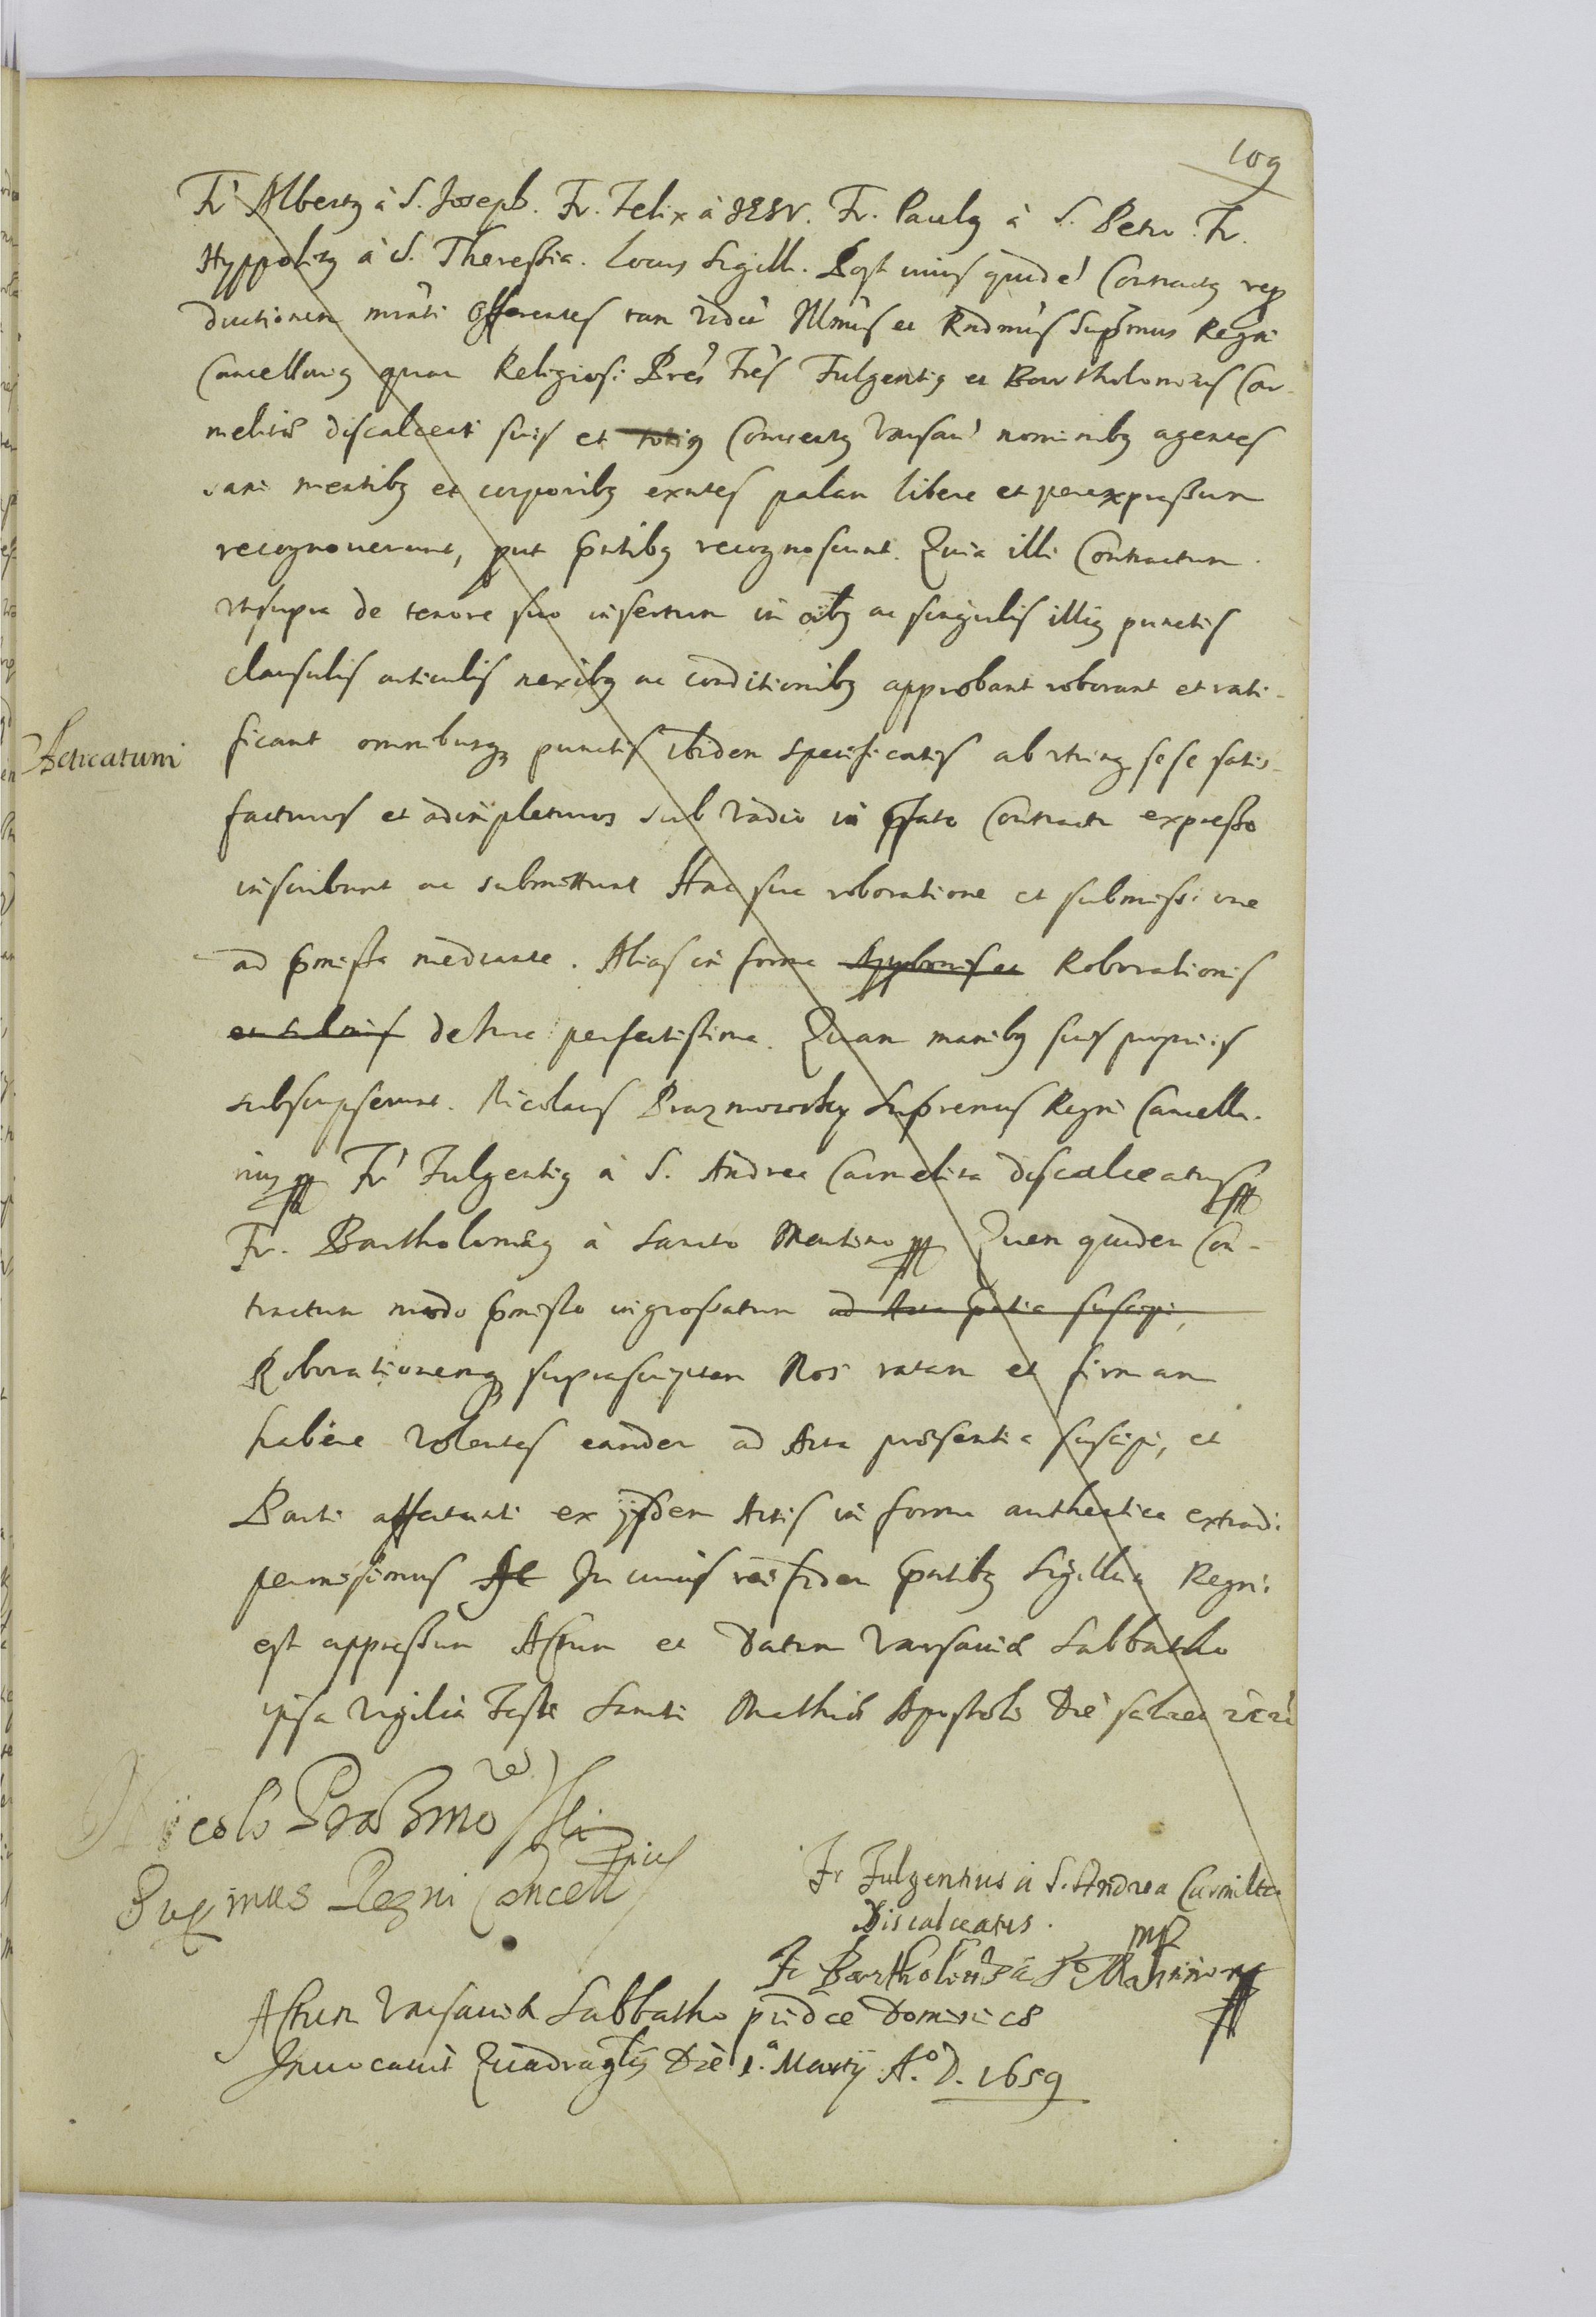 109
Fr Albertꝰ à S. Joseph. Fr. Felix à JESV. Fr. Paulꝰ à S. Petro. Fr.
Hyppolitꝰ à S. Theressia. Locus Sigilli. Post cuius quidē Contractꝰ rep
ductionem mēti Offerentes tam Idē Illmūs et Rndmūs Supr̄mus Regni
Cancellariꝰ quam Religiosi Pres Fres Fulgentiꝰ et Bartholomeus Car-
melitæ discalceati suis et totiꝰ Conventꝰ Varsaū nominibꝰ agentes
sani mentibꝰ et corporibꝰ exntes palam libere et per expressum
recognoverunt, put pn̄tibꝰ recognoscunt. Quia illi Contractum
vtsupra de tenore suo insertum in oībꝰ ac singulis illiꝰ punctis
clausulis articulis nexibꝰ ac conditionibꝰ approbant roborant et rati-
Acticatum
ficant omnibusqꝫ punctis ibidem specificatis ab vtrinqꝫ sese satis-
facturos et adimpleturos sub vadio in pfato Contractu expresso
inscribunt ac submittunt Hac sua roboratione et submissione
ad pmissa mediante. Alias in forma Roborationis
et submis de Jure perfectissima. Quam manibꝰ suis propriis
subscripserunt. Nicolaus Prazmowsky Supremus Regni Cancella-
riuꝰ Fr Fulgentiꝰ à S. Andrea Carmelita discalceatus
Fr. Bartholomæꝰ à Sancto Martino Quem quidem Con-
tractum modo pmisso ingrossatum ad Acta pntia suscipi,
Roborationemqꝫ suprascriptam Nos ratam et firmam
habere volentes eandem ad Acta præsentia suscipi, et
Parti affectanti ex ijsdem Actis in forma authentica extradi
permisimus In cuius rei fidem pn̄tibꝰ Sigillum Regni
est appressum Actum et Datum Varsaviæ Sabbatho
ipsa vigilia Festi Sancti Mathiæ Apostoli Die
Nicolo Prażmowski
Supremus Regni Cancellarius
Fr Fulgentius à S. Andrea Carmelita
Discalceatus. mp
Fr Bartholomeꝰ à Sto Martino
Actum Varsaviæ Sabbatho pridie Dominicæ
Invocavit Quadraglis Die 1.a Martij A.o D. 1659